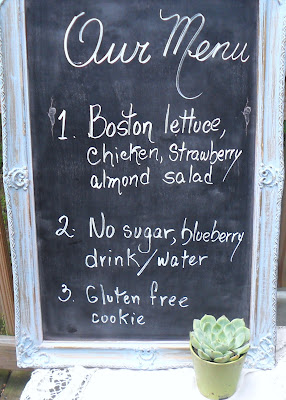 Our Menu
1. Boston lettuce,
chicken, strawberry
almond salad
2. No sugar, blueberry
drink/water
3. Gluten free
cookie